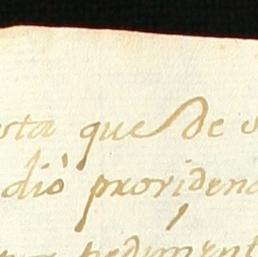 ota que De
dió providenc
pediment